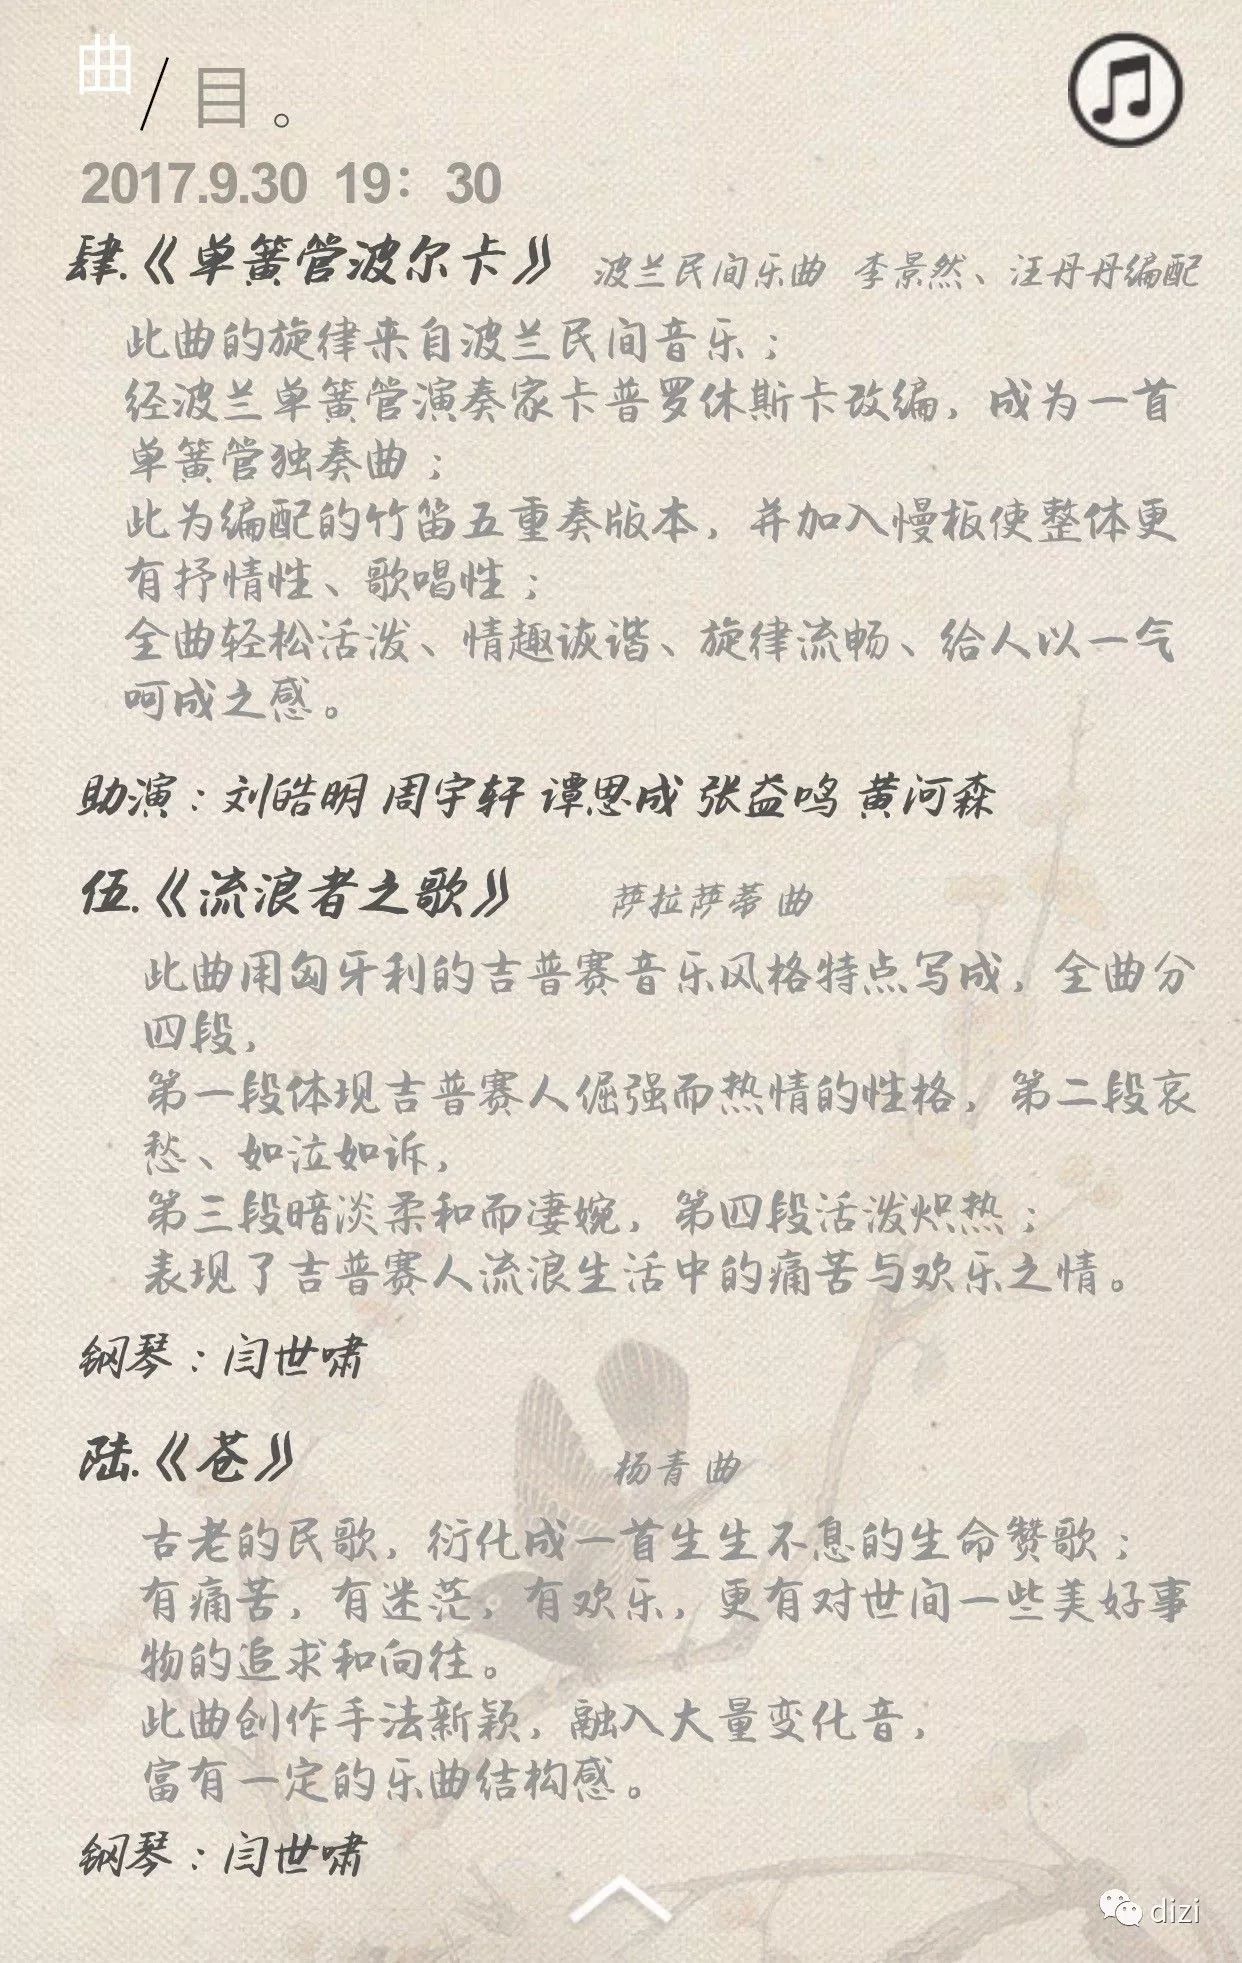 曲/目。
2017.9.30 19：30
肆.《单簧管波尔卡》 波兰民间乐曲 李景然、汪丹丹编配
此曲的旋律来自波兰民间音乐；
经波兰单簧管演奏家卡普罗休斯卡改编，成为一首
单簧管独奏曲；
此为编配的竹笛五重奏版本，并加入慢板使整体更
有抒情性、歌唱性；
全曲轻松活泼、情趣诙谐、旋律流畅、给人以一气
呵成之感。
助演：刘皓明 周宇轩 谭思成 张益鸣 黄河森
伍.《流浪者之歌》 萨拉萨蒂 曲
此曲用匈牙利的吉普赛音乐风格特点写成，全曲分
四段，
第一段体现吉普赛人倔强而热情的性格，第二段哀
愁、如泣如诉，
第三段暗淡柔和而凄婉，第四段活泼炽热；
表现了吉普赛人流浪生活中的痛苦与欢乐之情。
钢琴：闫世啸
陆.《苍》 杨青 曲
古老的民歌，衍化成一首生生不息的生命赞歌；
有痛苦，有迷茫，有欢乐，更有对世间一些美好事
物的追求和向往。
此曲创作手法新颖，融入大量变化音，
富有一定的乐曲结构感。
钢琴：闫世啸
dizi